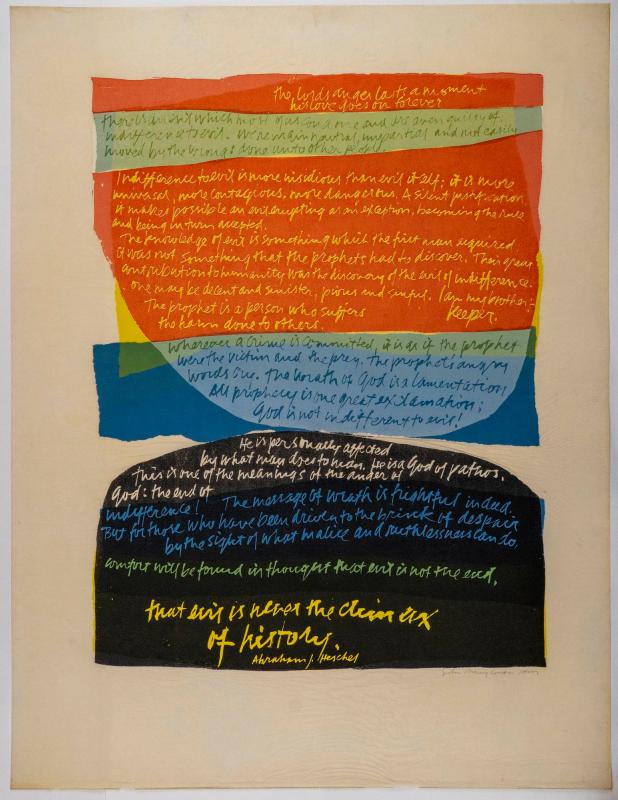 the lords anger lasts a moment
his love goes on forever
there is an evil which most of us condone and are even guilty of
indifference to evil. We remain neutral, impartial and not easily
moved by the wrongs done unto other people
Indifference to evil is more insidious than evil itself; it is more
universal, more contagious, more dangerous. A silent justification
it makes possible an evil erupting as an exception, becoming the rule
and being in turn accepted.
The knowledge of evil is something which the first man acquired.
it was not something that the prophets had to discover. Their great
contribution to humanity was the discovery of the evil of indifference.
one may be decent and sinister, pious and sinful. I am my brother's
Keeper.
The prophet is a person who suffers
the harm done to others.
wherever a crime is committed, it is as if the prophet
were the victim and the prey. The prophet's angry
words cry. The wrath of God is a lamentation
All prophecy is one great exclamation;
God is not indifferent to evil!
He is personally affected
by what man does to man. He is a God of pathos.
This is one of the meanings of the anger of
God: the end of
indifference! The message of wrath is frightful indeed.
But for those who have been driven to the brink of despair
by the sight of what malice and ruthlessness can do.
comfort will be found in thought that evil is not the end,
that evil is never the climax
of history.
Abraham J. Heschel